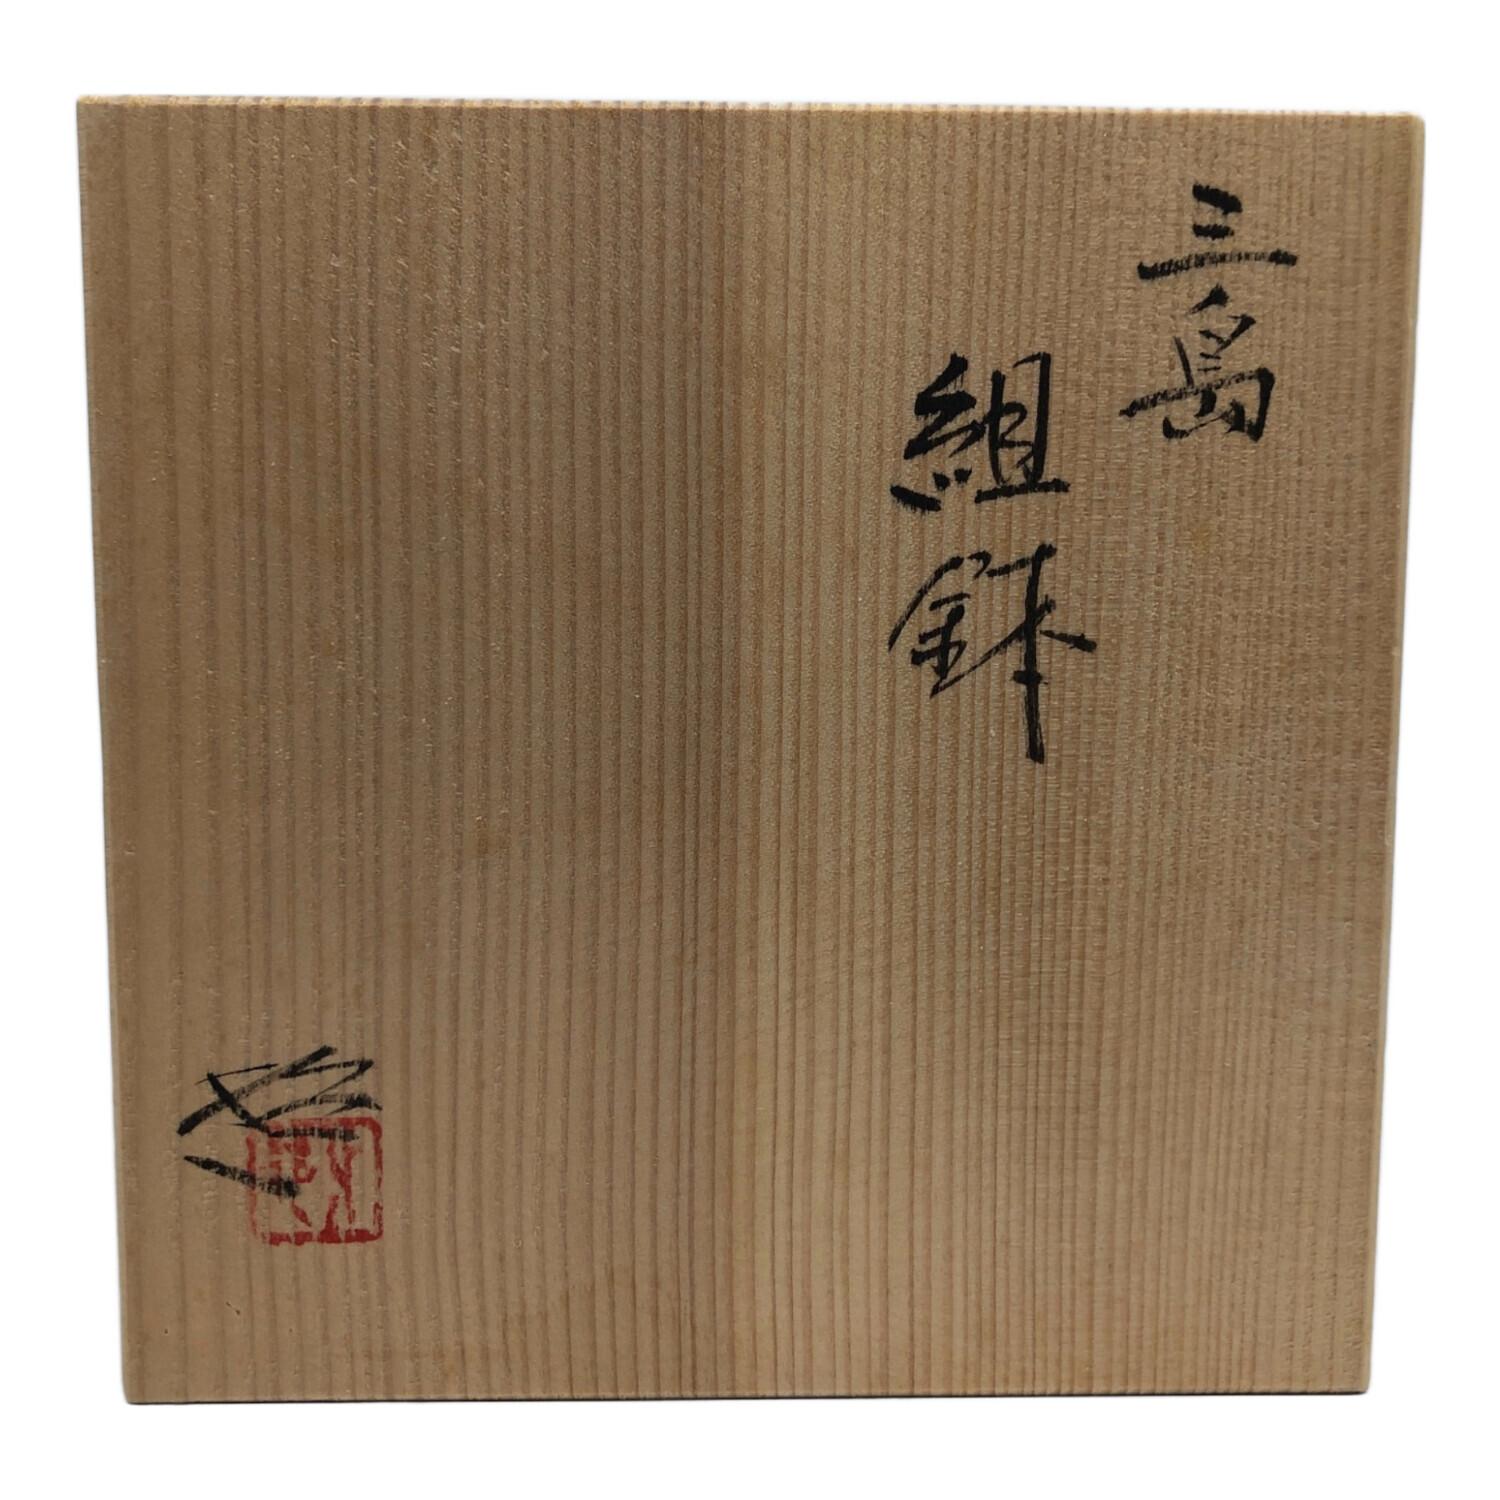 三島
組鉢